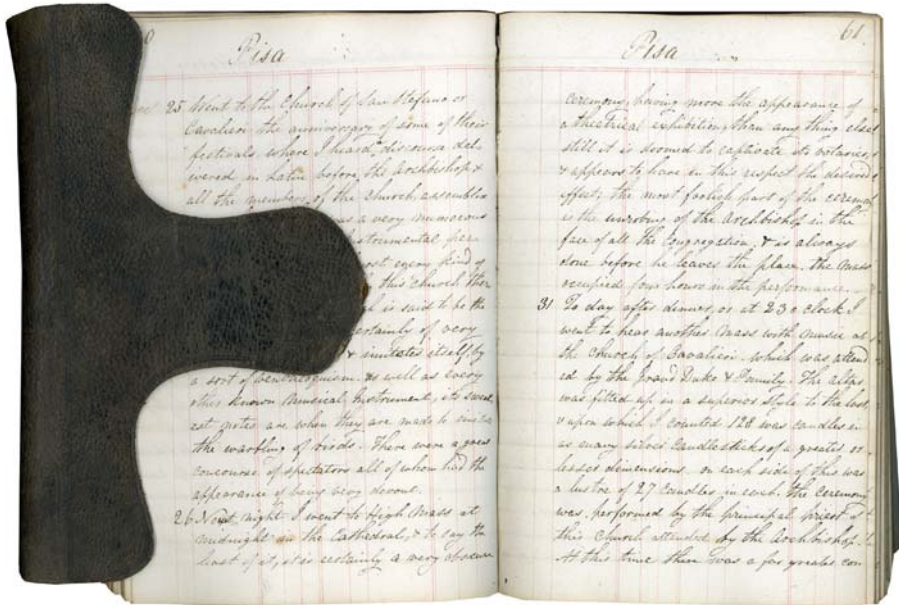 Pisa
25 Went to the Church of San Stefano or
Cavalieri the anniversary of some of their
festivals where I heard discourse del-
ivered in Latin before the Archbishop &
all the members of the Church, assembled
a very numerous
instrumental per
most every kind of
this church ther
is said to be the
certainly of very
& imitates itself, by
a sort of ventriloquism as well as every
other known musical Instrument, its sweet
est notes are when they are made to imitate
the warbling of birds. There were a great
concourse of spectators all of whom had the
appearance of being very devout.
26 Next night I went to High Mass at
midnight in the Cathedral, & to say the
least of it, it is certainly a very obscure
61
Pisa
ceremony, having more the appearance of
a theatrical exhibition, than any thing else
still it is doomed to captivate its votaries,
& appears to have in this respect the desired
effect; the most foolish part of the ceremony
is the unrobing of the Archbishop in the
face of all the congregation, & is always
done before he leaves the place, the Mass
occupied four hours in the performance.
31 To day after dinner, or at 23 o clock I
went to hear another Mass with music at
the church of Cavalieri, which was attend
ed by the Grand Duke & Family. The altar
was fitted up in a superior style to the last,
& upon which I counted 128 wax candles in
as many silver candlesticks of a greater or
lesser dimensions, on each side of this was
a lustre of 27 candles in each. the ceremony
was performed by the principal priest of
this church attended by the Archbishop.
At this time there was a far greater con